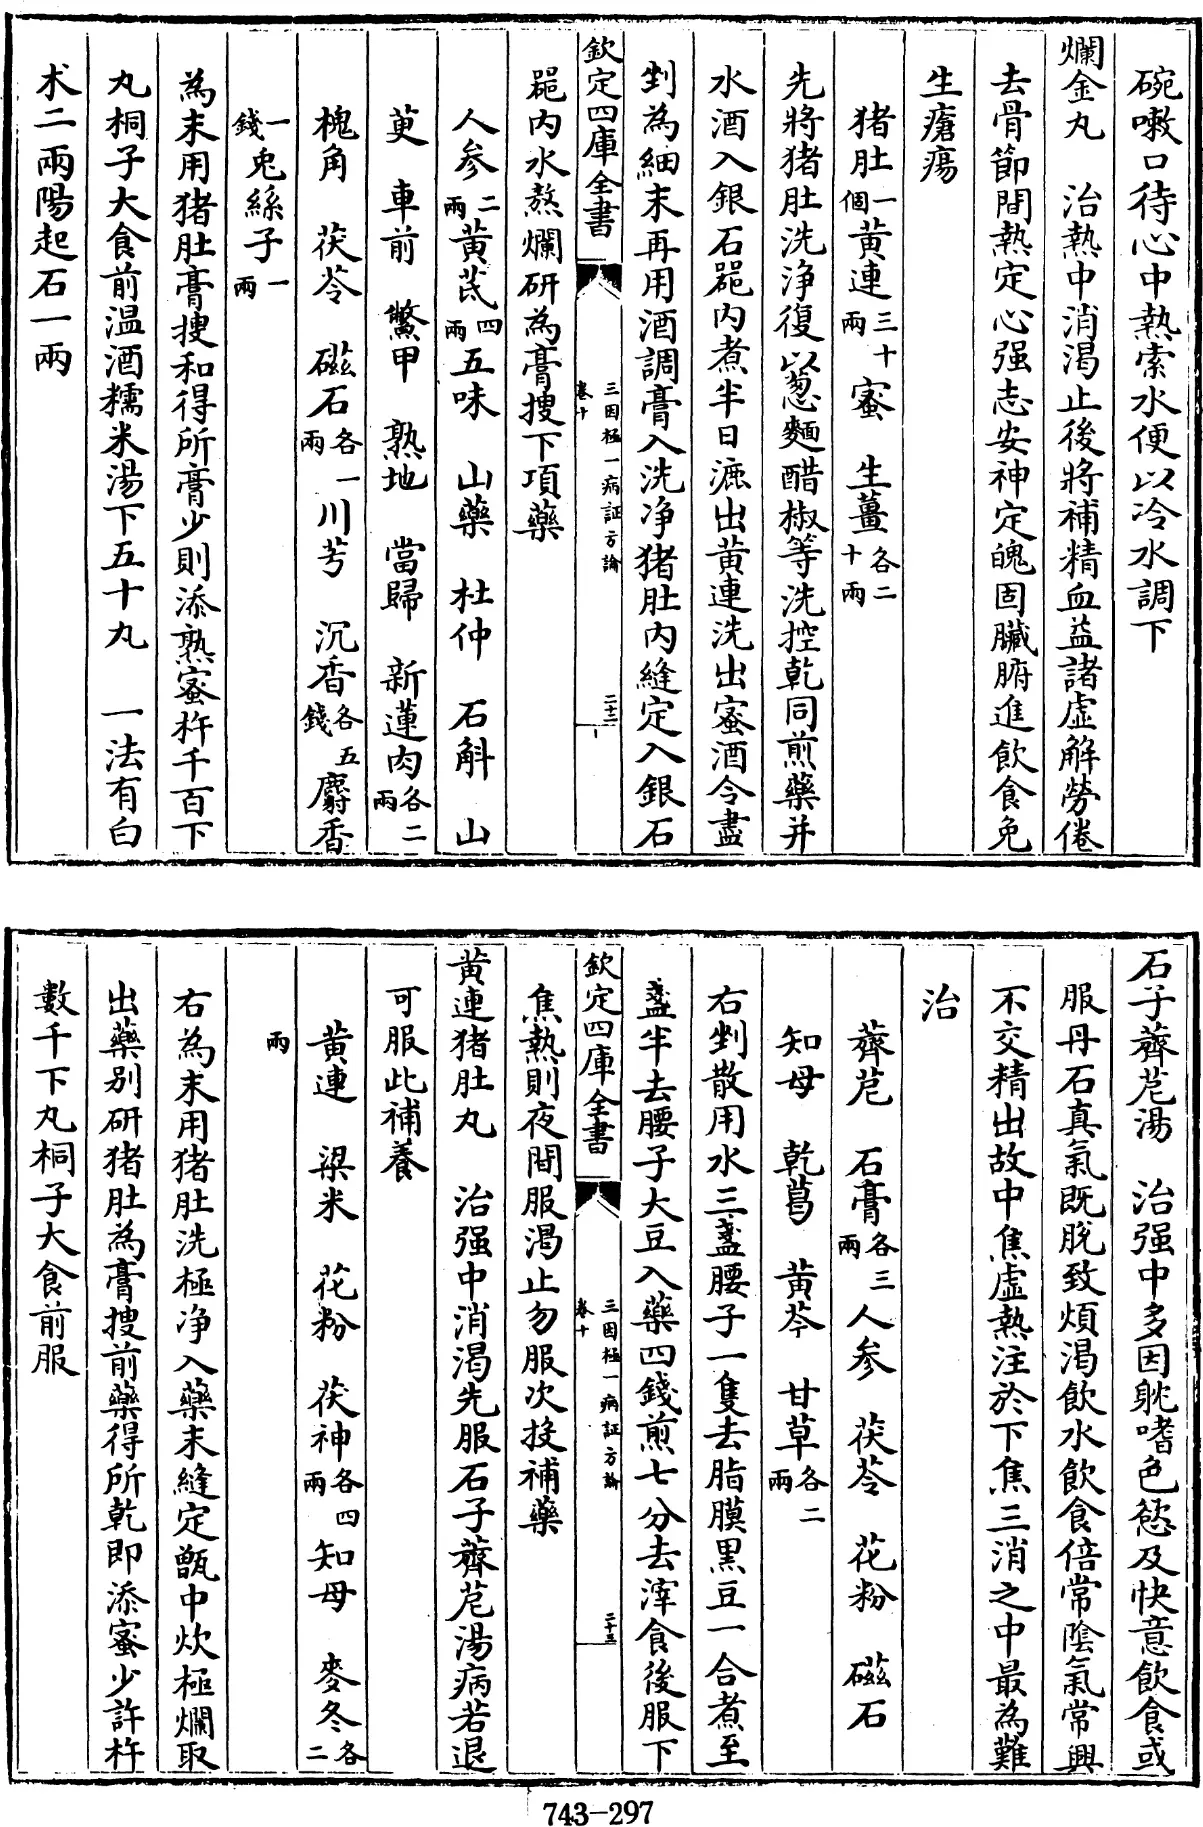 碗嗽口待心中熱索水便以冷水調下
爛金丸　治熱中消渴止後將補精血益諸虛解勞倦
去骨節間熱定心强志安神定魄固臟腑進飲食免
生瘡瘍
猪肚一個黄連三十兩蜜　生薑各二十兩
先將猪肚洗浄復以葱麵醋椒等洗控乾同煎藥并
水酒入銀石噐内煮半日漉出黄連洗出蜜酒令盡
剉為細末再用酒調膏入洗浄猪肚内縫定入銀石
欽定四庫全書　三因極一病証方論　卷十　二十二
噐内水熬爛研為膏搜下項藥
人參二兩黄芪四兩五味　山藥　杜仲　石斛　山
萸　車前　鱉甲　熟地　當歸　新蓮肉各二兩
槐角　茯苓　磁石各一兩川芎　沉香各五錢麝香
一錢兎絲子一兩
為末用猪肚膏搜和得所膏少則添熟蜜杵千百下
丸桐子大食前温酒糯米湯下五十丸　一法有白
朮二兩陽起石一兩
石子薺苨湯　治强中多因躭嗜色慾及快意飲食或
服丹石真氣既脱致煩渴飲水飲食倍常陰氣常興
不交精出故中焦虛熱注於下焦三消之中最為難
治
薺苨　石膏各三兩人參　茯苓　花粉　磁石
知母　乾葛　黄芩　甘草各二兩
右剉散用水三盞腰子一隻去脂膜黑豆一合煮至
盞半去腰子大豆入藥四錢煎七分去滓食後服下
欽定四庫全書　三因極一病証方論　卷十　二十三
焦熱則夜間服渴止勿服次投補藥
黄連猪肚丸　治强中消渴先服石子薺苨湯病若退
可服此補養
黄連　粱米　花粉　茯神各四兩知母　麥冬各二
兩
右為末用猪肚洗極浄入藥末縫定甑中炊極爛取
出藥别研猪肚為膏搜前藥得所乾即添蜜少許杵
數千下丸桐子大食前服
743-297